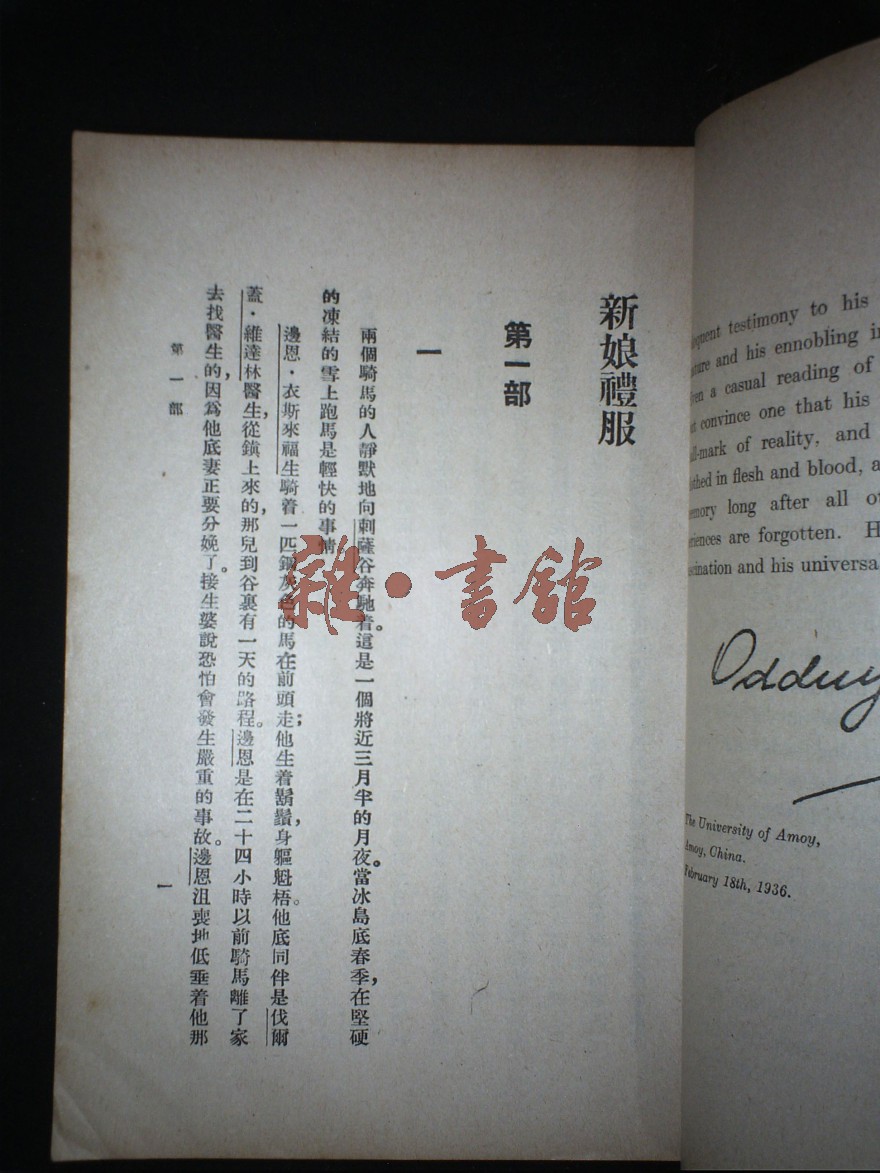 新娘禮服
第一部
一
兩個騎馬的人靜默地向刺薩谷奔馳着。這是一個將近三月半的月夜。當冰島底春季，在堅硬
的凍結的雪上跑馬是輕快的事情。
邊恩·衣斯來福生騎着一匹鋼灰色的馬在前頭走；他生着鬍鬚，身軀魁梧。他底同伴是伐爾
蓋·維達林醫生，從鎮上來的，那兒到谷裏有一天的路程。邊恩是在二十四小時以前騎馬離了家
去找醫生的，因爲他底妻正要分娩了。接生婆說恐怕會發生嚴重的事故。邊恩沮喪地低垂着他那
第一部
一
雜·書館
testimony to his
and his ennobling
a casual reading of
convince one that his
mark of reality, and
in flesh and blood,
long after all
are forgotten.
and his universal
The University of Amoy,
Amoy, China.
February 18th, 1936.